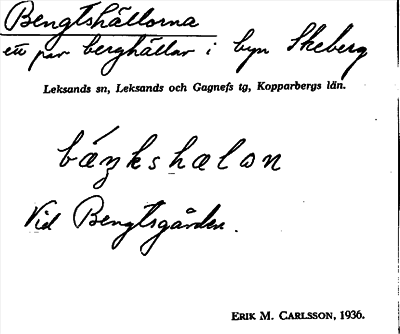 Bengtshällorna
ett par berghällar i byn Skeberg
Leksands sn, Leksands och Gagnefs tg, Kopparbergs län.
báŋkshælon
Vid Bengtsgården.
ERIK M. CARLSSON, 1936.